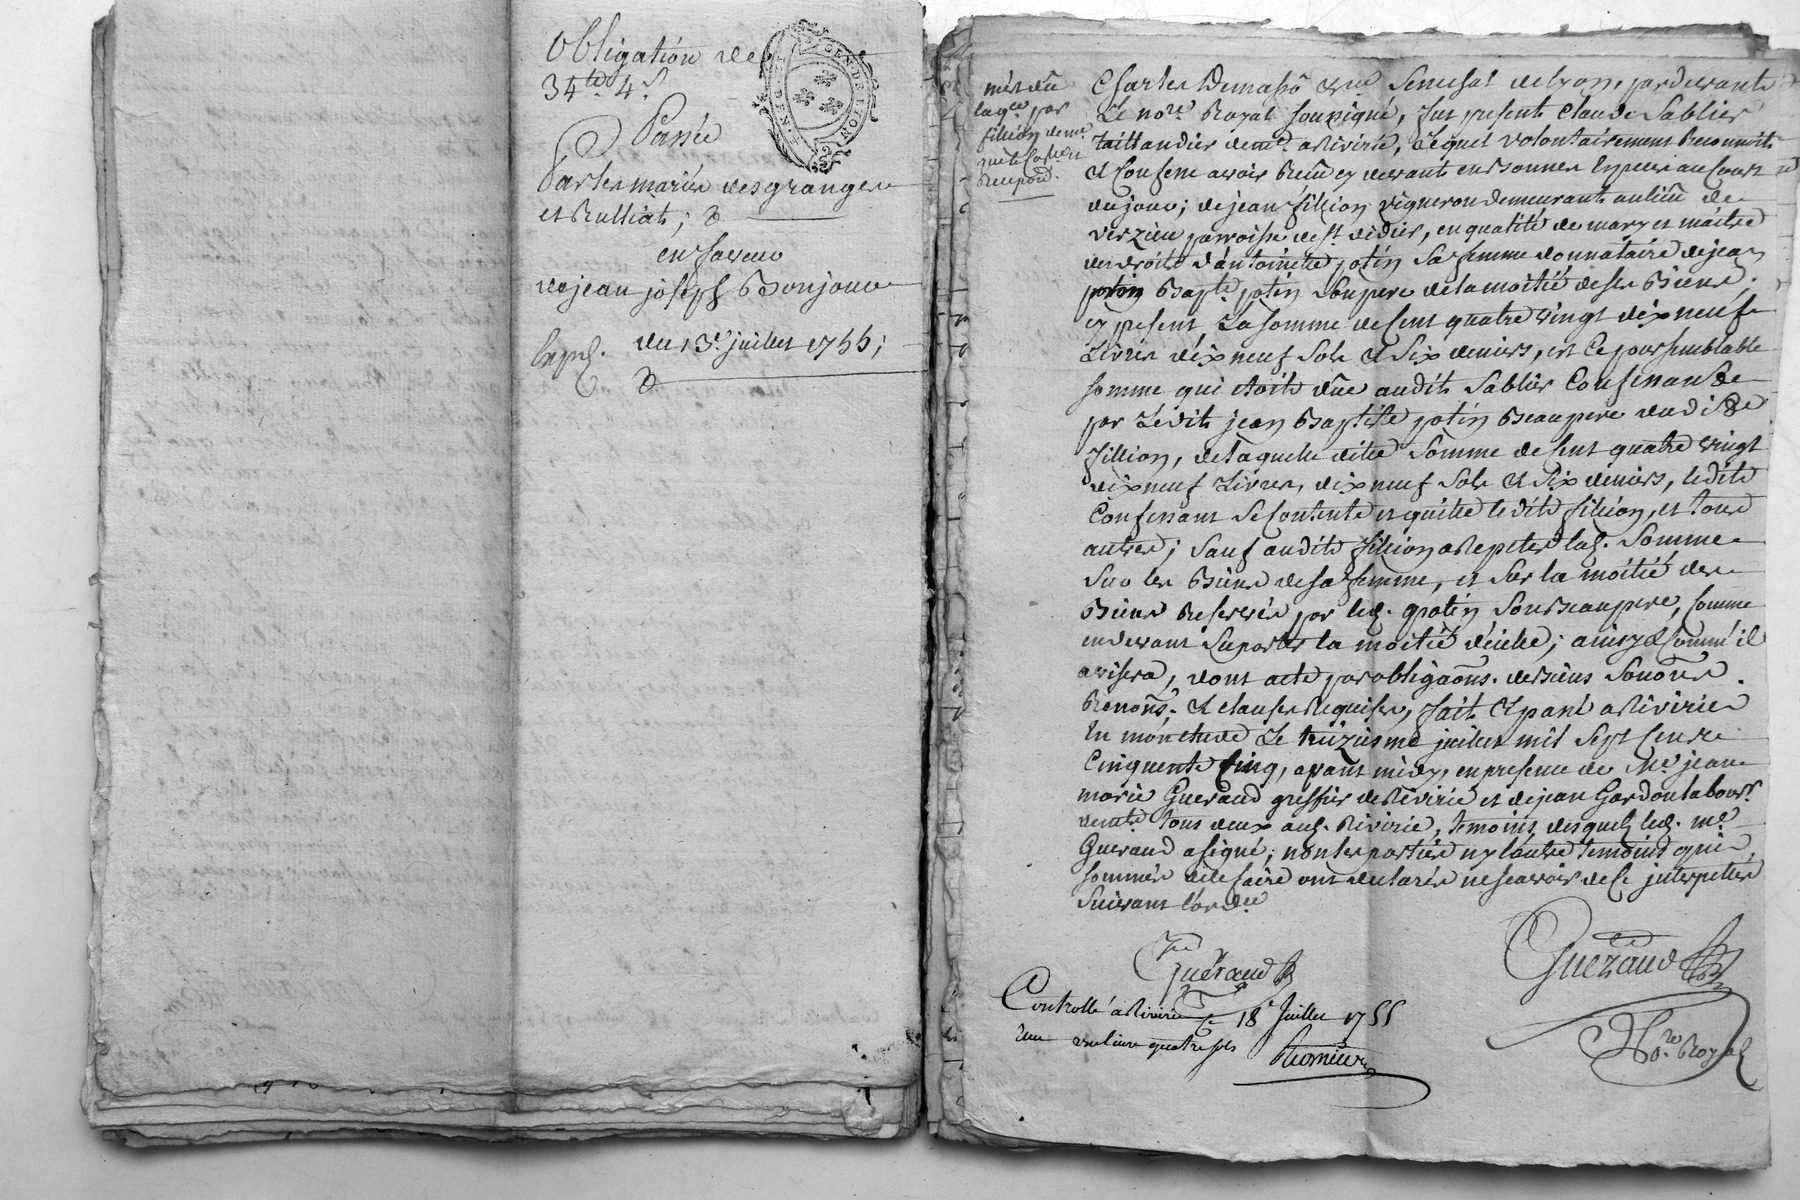 Obligation de
34 tt 4 s
Passée
Par les mariés desgranges
et Rulliat;
en faveur
de jean joseph Bonjour
du 13e juillet 1755;
Exped.
GEN. DE LYON
par
fillion
Charles Demasso Senechal de Lyon, par devant
Le nore Royal soussigné, fut present Claude Sablier
taillandier demt a Riviric, Lequel volontairement Reconnoit
& Confesse avoir Reçu cy devant en bonnes Especes au Cours
du jour; de jean fillion vigneron demeurant au lieu de
verzieu parroisse de st didier, en qualité de mary et maitre
des droits d'antoinette potin sa femme donnataire de jean
potin Bapte potin son pere de la moitié de ses Biens,
cy present La somme de Cent quatre vingt dix neuf
Livres dix neuf sols & six deniers, et Ce pour semblable
somme qui etoit dûe audit Sablier Confessant
par Ledit jean Baptiste potin Beaupere dudit
fillion, de laquelle dite somme de Cent quatre vingt
dix neuf Livres, dix neuf sols & six deniers, ledit
Confessant se Contente et quitte ledit fillion, et tous
autres; sauf audit fillion a Repeter lad. somme
sur les Biens de sa femme, et sur la moitié des
Biens Reservés par led. potin son Beaupere, comme
en devant suporter la moitié d'icelle; ainsy & comme il
avisera, dont acte par obligaons. de biens
Renons. & clauses Requises, fait & passé a Riviric
En mon etude Le treizieme juillet mil sept cent
Cinquante Cinq, avant midy, en presence de Me jean
marie Gueraud greffier de Riviric et de jean Gardon labourr.
demt. tous deux aud. Riviric, temoins, desquels led. me
Gueraud a signé; non les parties ny l'autre temoins qui
sommés de le faire ont declarés ne scavoir de Ce interpellés
suivant l'ord.ce
Gueraud
Gueraud
Nore Royal
Controllé a Riviric Ce 18e Juillet 1755
Reçu une livre quatre sols